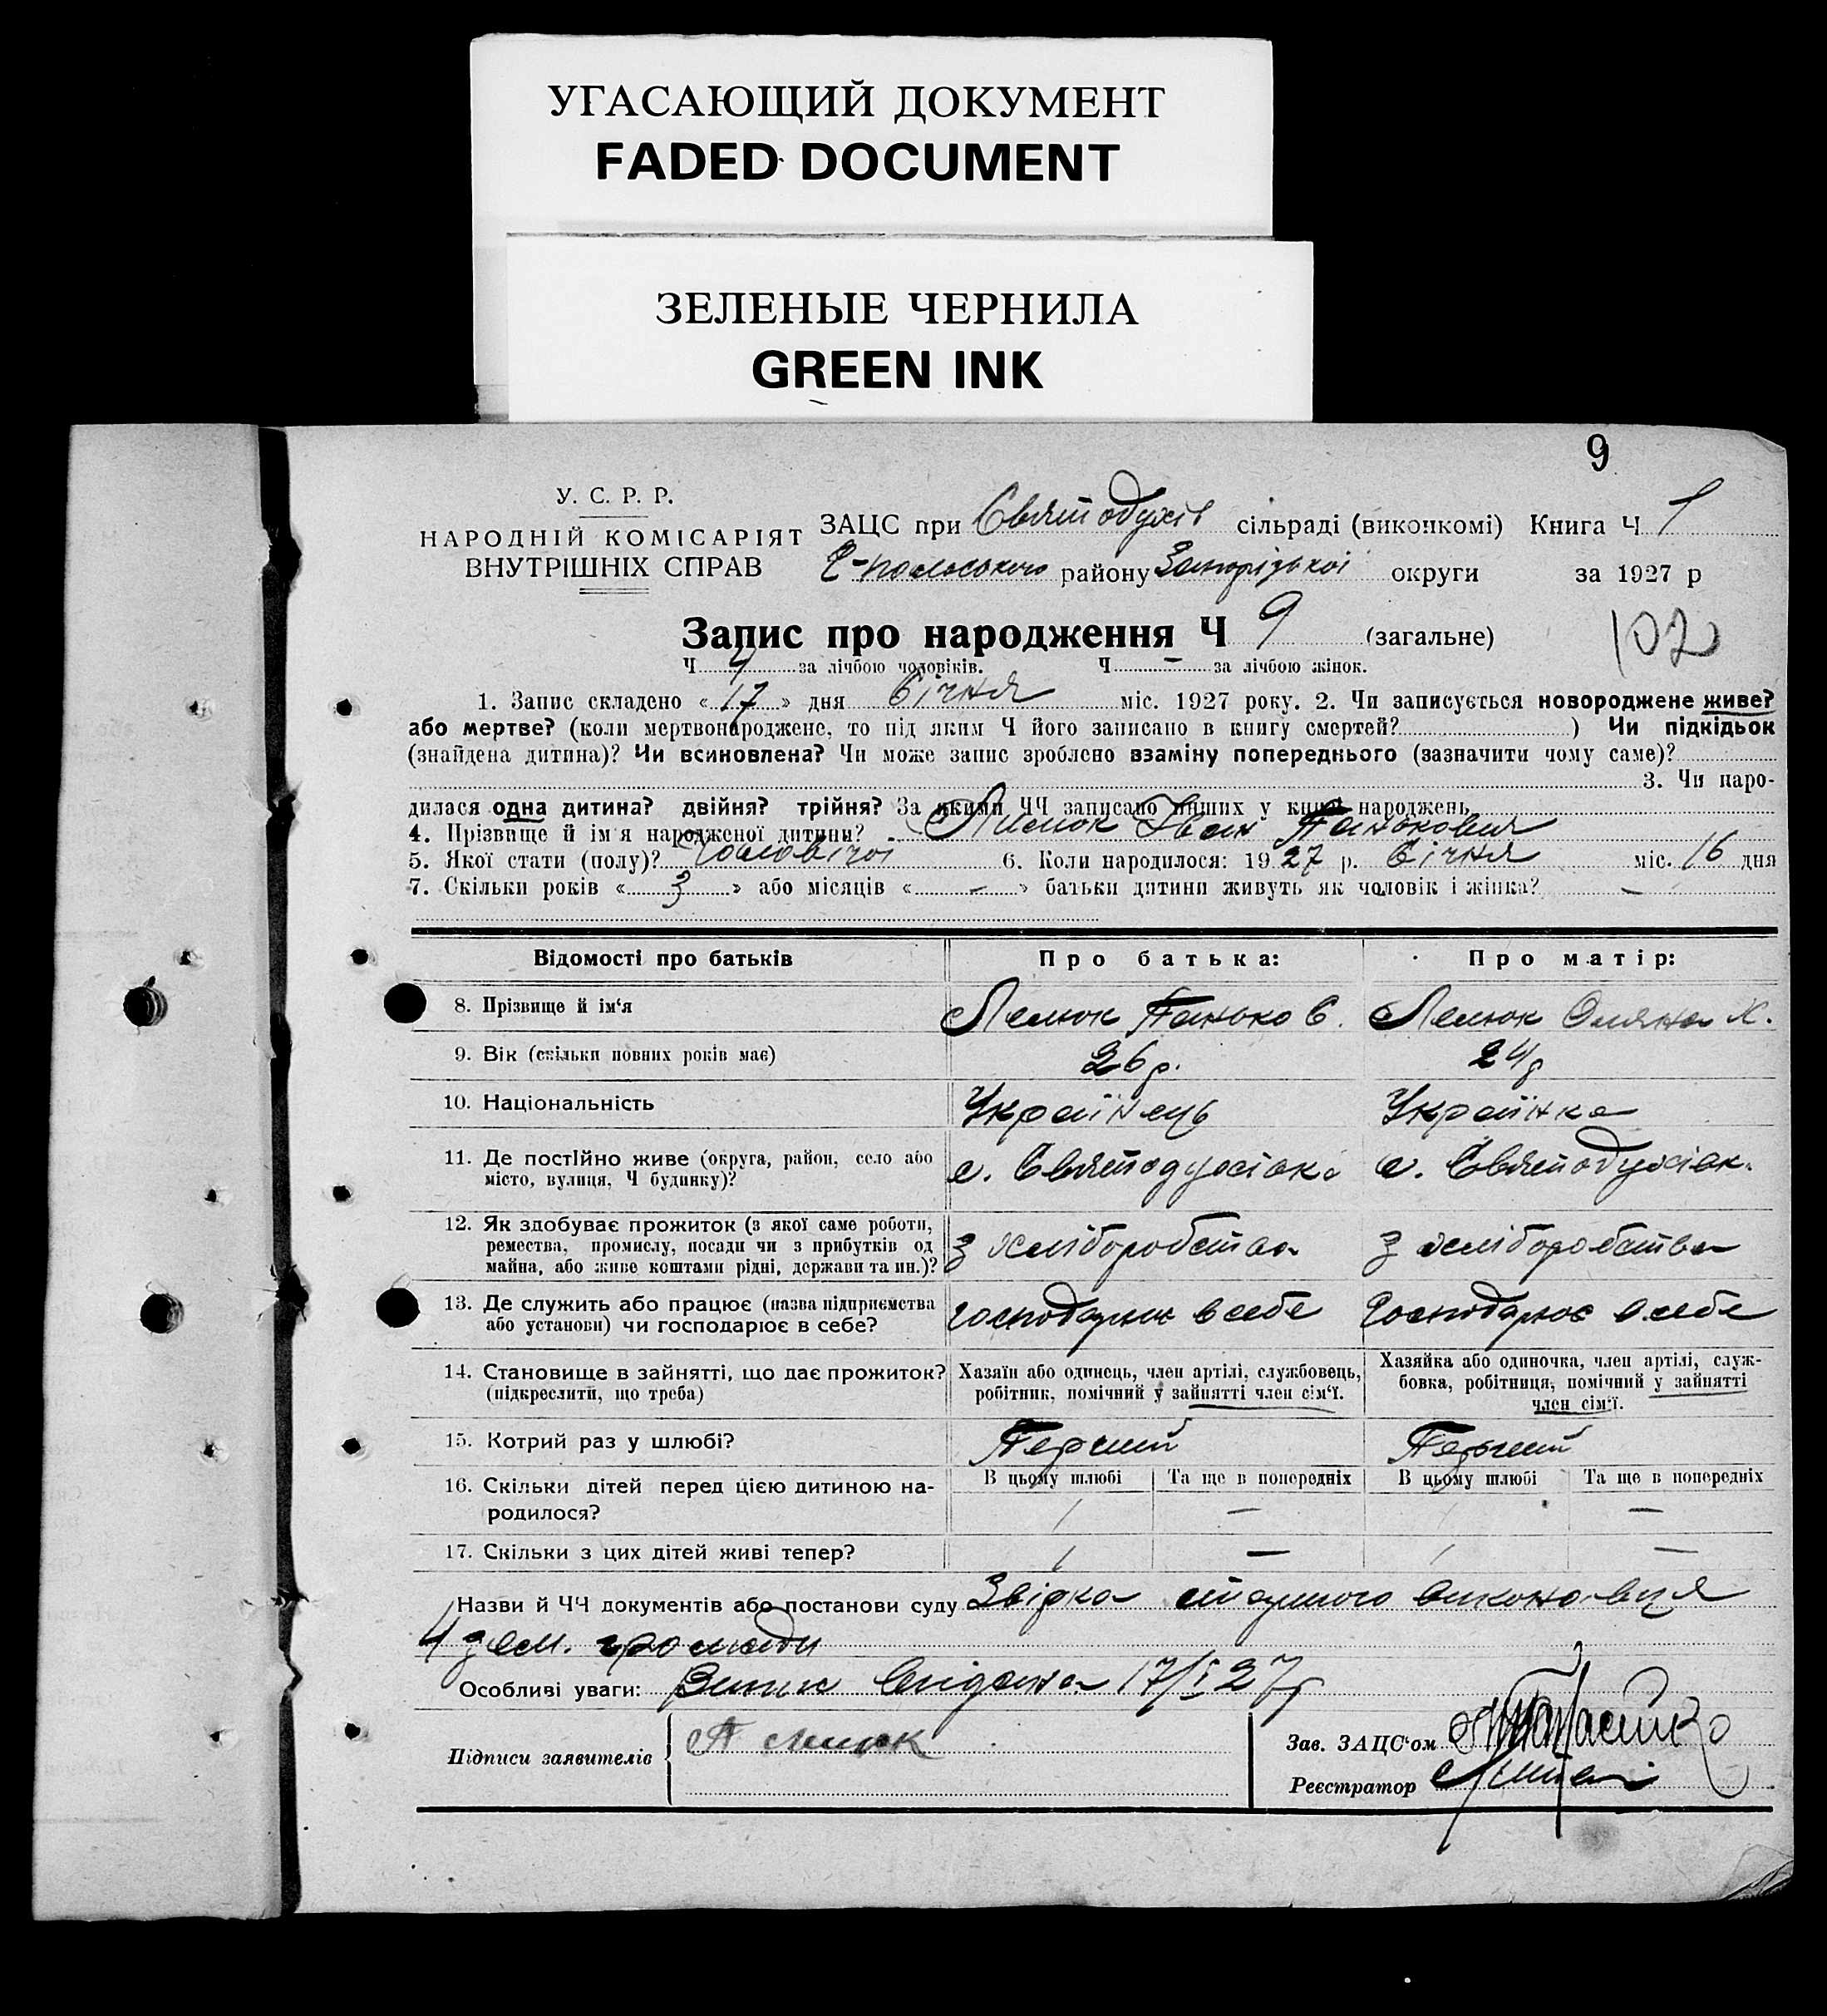 УГАСАЮЩИЙ ДОКУМЕНТ
FADED DOCUMENT
ЗЕЛЕНЫЕ ЧЕРНИЛА
GREEN INK
9
У. С. Р. Р.
НАРОДНІЙ КОМІСАРІЯТ
ВНУТРІШНІХ СПРАВ
ЗАЦС при Святодухів сільраді (виконкомі) Книга Ч 1
району Запорізької округи за 1927 р
Запис про народження Ч 9 (загальне)
102
Ч 4 за лічбою чоловіків. Ч – за лічбою жінок.
1. Запис складено «17» дня Січня міс. 1927 року. 2. Чи записується новороджене живе?
або мертве? (коли мертвонароджене, то під яким Ч його записано в книгу смертей? ) Чи підкідьок
(знайдена дитина)? Чи всиновлена? Чи може запис зроблено взаміну попереднього (зазначити чому саме)?
3. Чи наро-
дилася одна дитина? двійня? трійня? За якими ЧЧ записано инших у книзі народжень
4. Прізвище й ім'я народженої дитини? Иван Панькович
5. Якої стати (полу)? Чоловічої 6. Коли народилося: 1927 р. Січня міс. 16 дня
7. Скільки років «3» або місяців «–» батьки дитини живуть як чоловік і жінка? –
Відомості про батьків Про батька: Про матір:
8. Прізвище й ім'я Лелюк Панько С. Лелюк Оляна Х.
9. Вік (скільки повних років має) 26 р. 24 р
10. Національність Українець Українка
11. Де постійно живе (округа, район, село або
місто, вулиця, Ч будинку)? с. Святодухівка с. Святодухівк.
12. Як здобуває прожиток (з якої саме роботи,
ремества, промислу, посади чи з прибутків од
майна, або живе коштами рідні, держави та ин.)? З хліборобства З хліборобства
13. Де служить або працює (назва підприємства
або установи) чи господарює в себе? Господарює в себе Господарює в себе
14. Становище в зайнятті, що дає прожиток?
(підкреслити, що треба)
Хазяїн або одинець, член артілі, службовець,
робітник, помічний у зайнятті член сім'ї.
Хазяйка або одиночка, член артілі, служ-
бовка, робітниця, помічний у зайнятті
член сім'ї.
15. Котрий раз у шлюбі? Перший Перший
В цьому шлюбі Та ще в попередніх В цьому шлюбі Та ще в попередніх
16. Скільки дітей перед цією дитиною на-
родилося? 1 – 1 –
17. Скільки з цих дітей живі тепер? 1 – 1 –
Назви й ЧЧ документів або постанови суду Звірка виконавця
4 зем. громади
Особливі уваги: Випис видана 17/I 27 р
Підписи заявителів П Лелюк
Зав. ЗАЦС'ом
Реєстратор